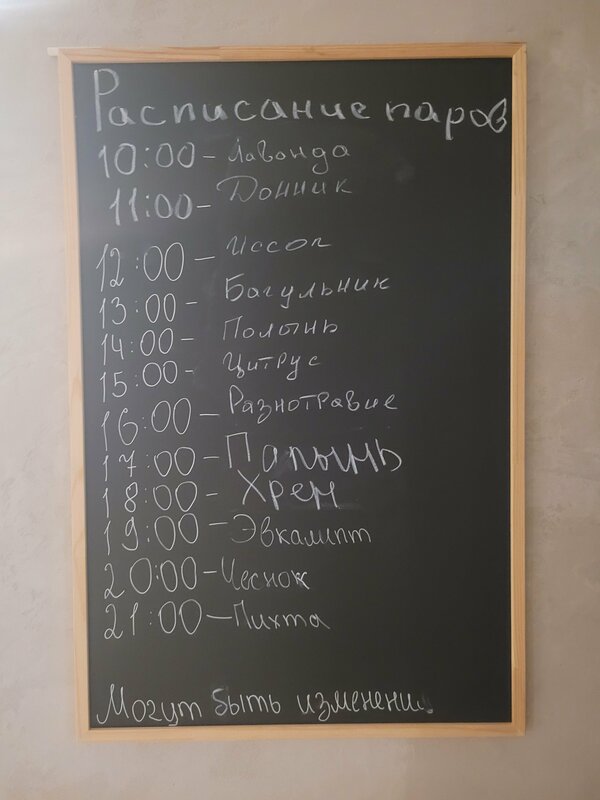 Расписание паров
10:00 - Лавонда
11:00 - Донник
12:00 - Иссоп
13:00 - Багульник
14:00 - Полынь
15:00 - Цитрус
16:00 - Разнотравие
17:00 - Полынь
18:00 - Хрен
19:00 - Эвкалипт
20:00 - Чеснок
21:00 - Пихта
Могут быть изменения.